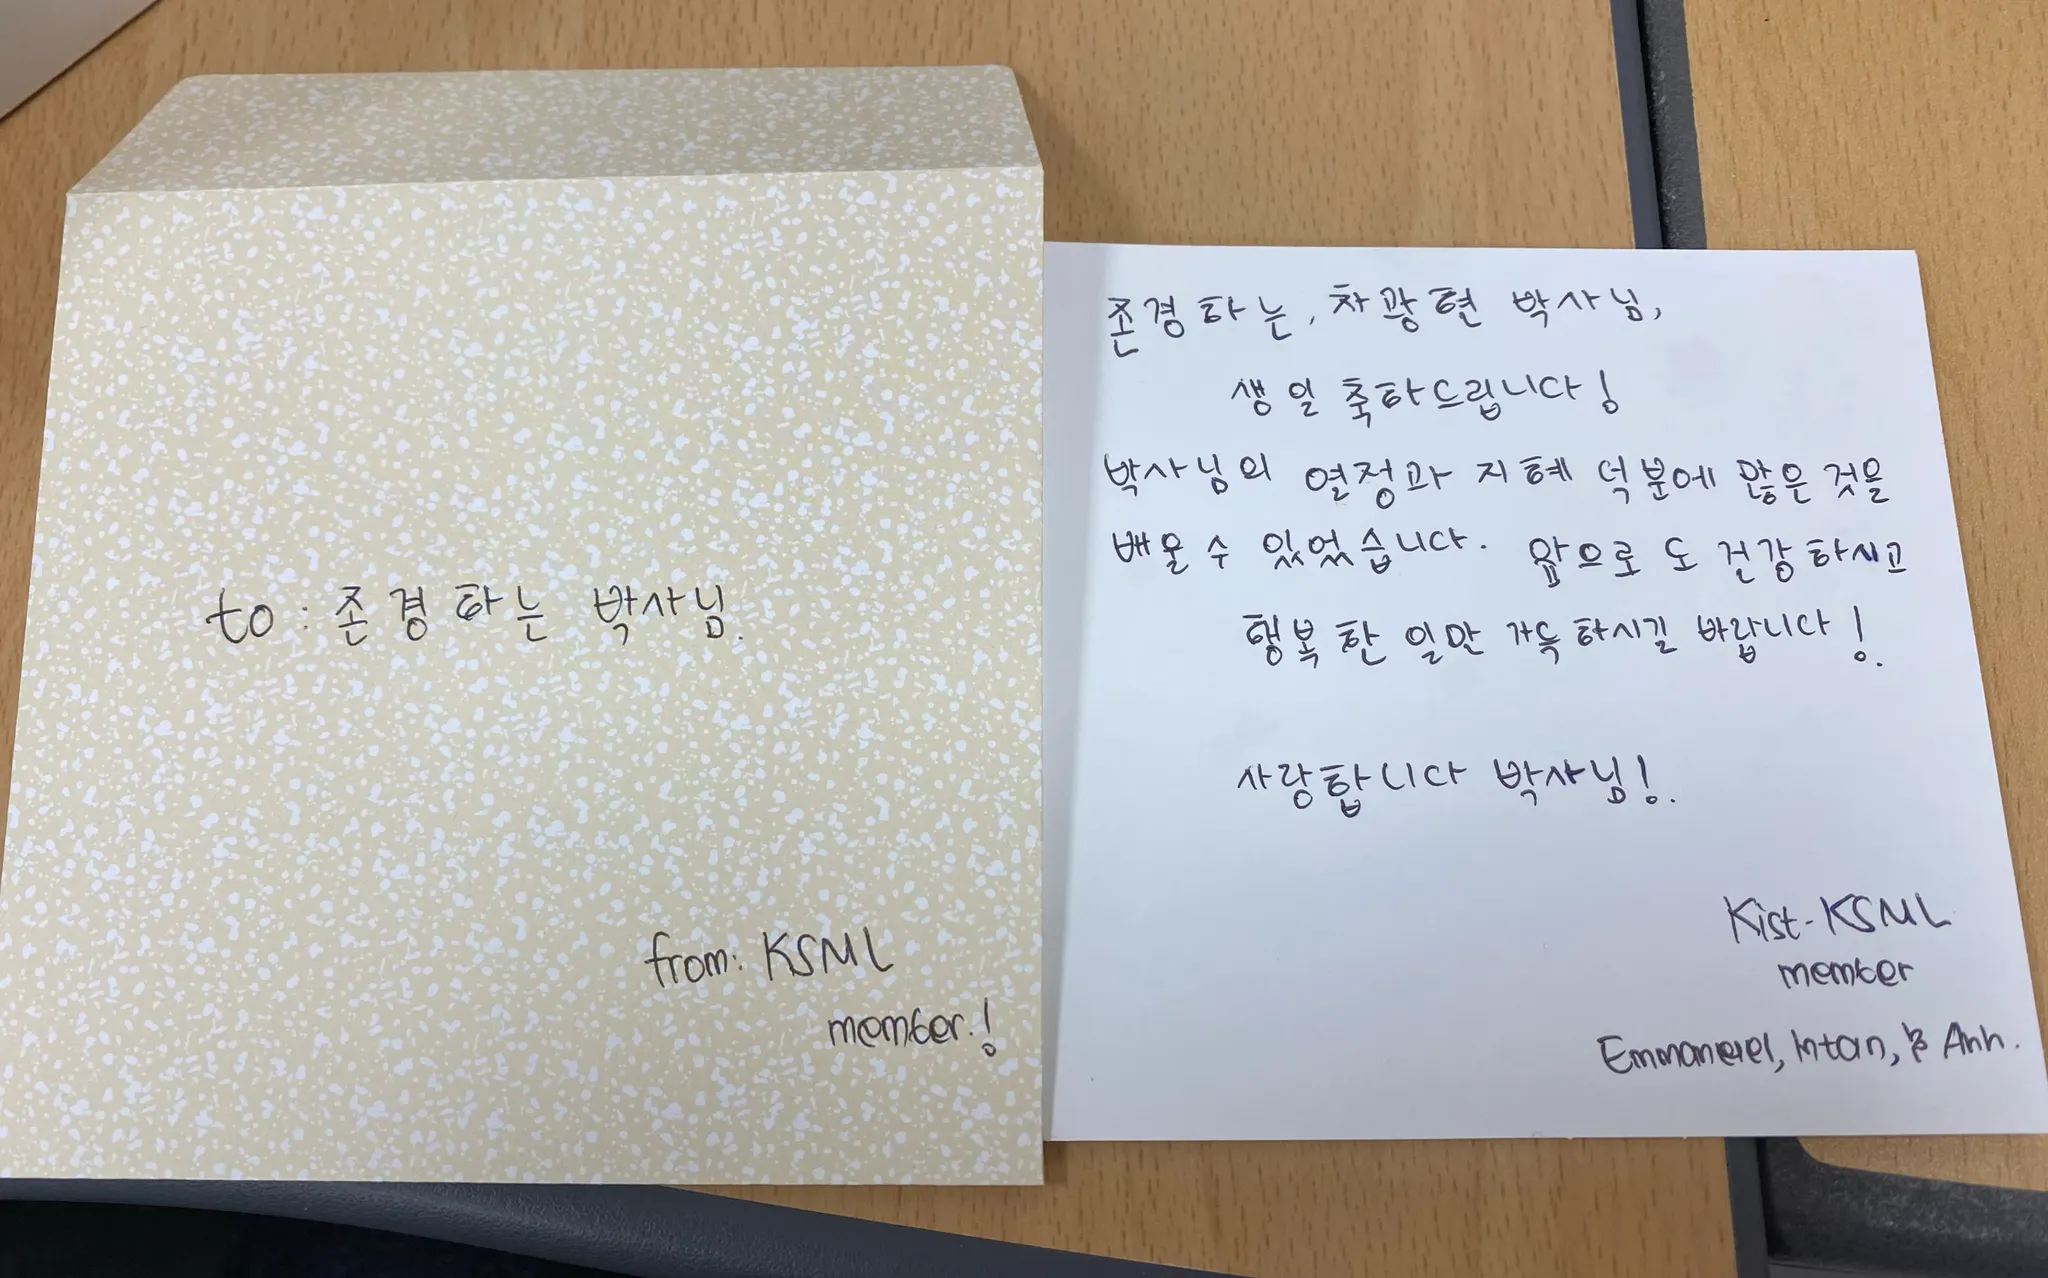 to: 존경하는 박사님.
from: KSML
member.!
존경하는, 차광현 박사님,
생일 축하드립니다!
박사님의 열정과 지혜 덕분에 많은 것을
배울 수 있었습니다. 앞으로도 건강하시고
행복한 일만 가득하시길 바랍니다!.
사랑합니다 박사님!.
Kist-KSML
member
Emmanuel, Intan, & Anh.